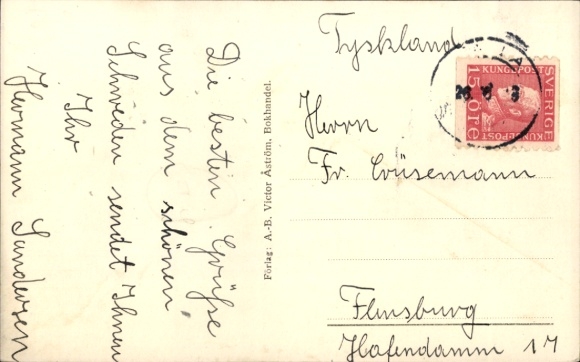 Die besten Grüße
aus dem schönen
Schweden sendet Ihnen
Ihr
Hermann Sandersen
Förlag: A.-B. Victor Åström, Bokhandel.
Tyskland
SVERIGE
KUNGSPOST
15 ÖRE
KUNGSPOST
Herrn
Fr. Crüsemann
Flensburg
Hafendamm 17